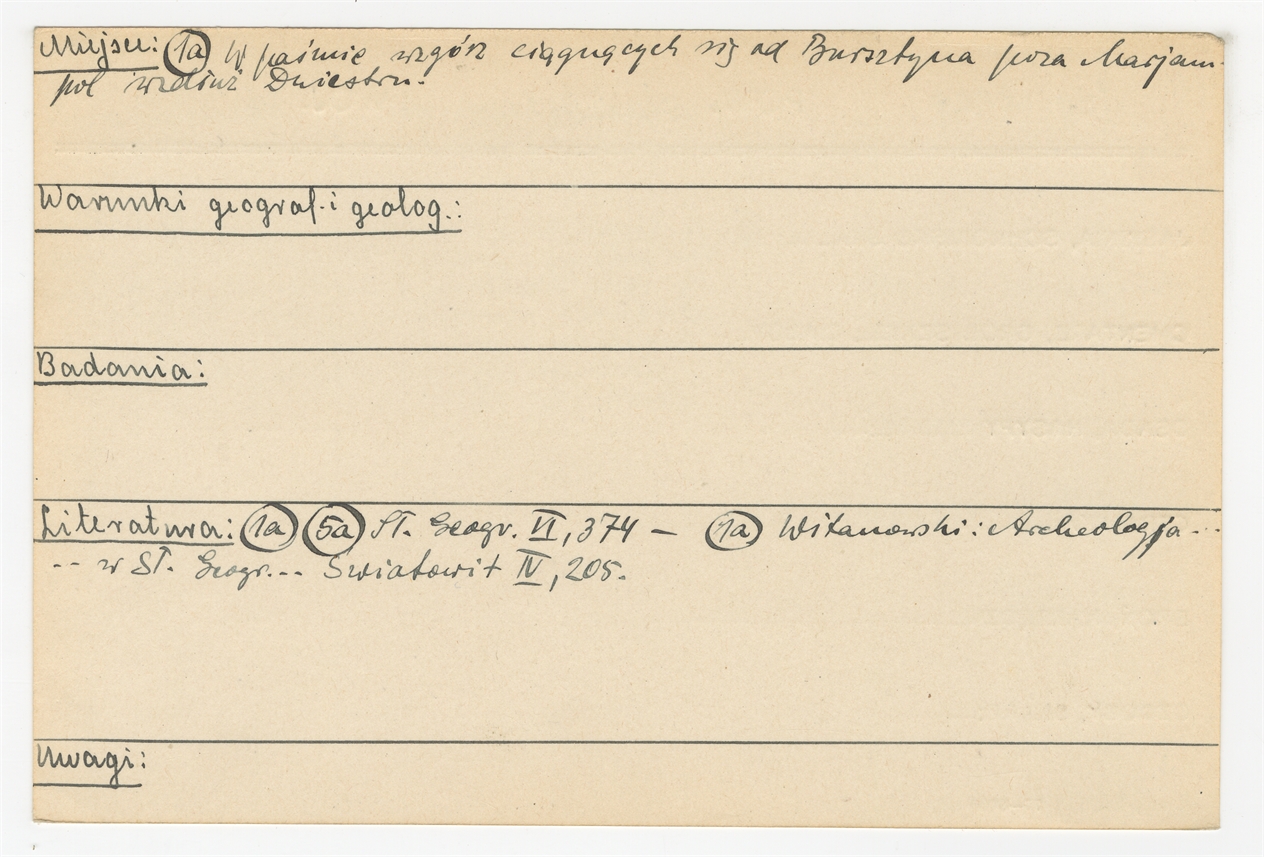 Miejsce: (1a) W paśmie wzgórz ciągnących się od Bursztyna poza Marjam-
pol wzdłuż Dniestru.
Warunki geograf. i geolog.:
Badania:
Literatura: (1a) (5a) Sł. Geogr. VI, 374 — (1a) Witanowski: Archeologja...
-- w Sł. Geogr... Światowit IV, 205.
Uwagi: